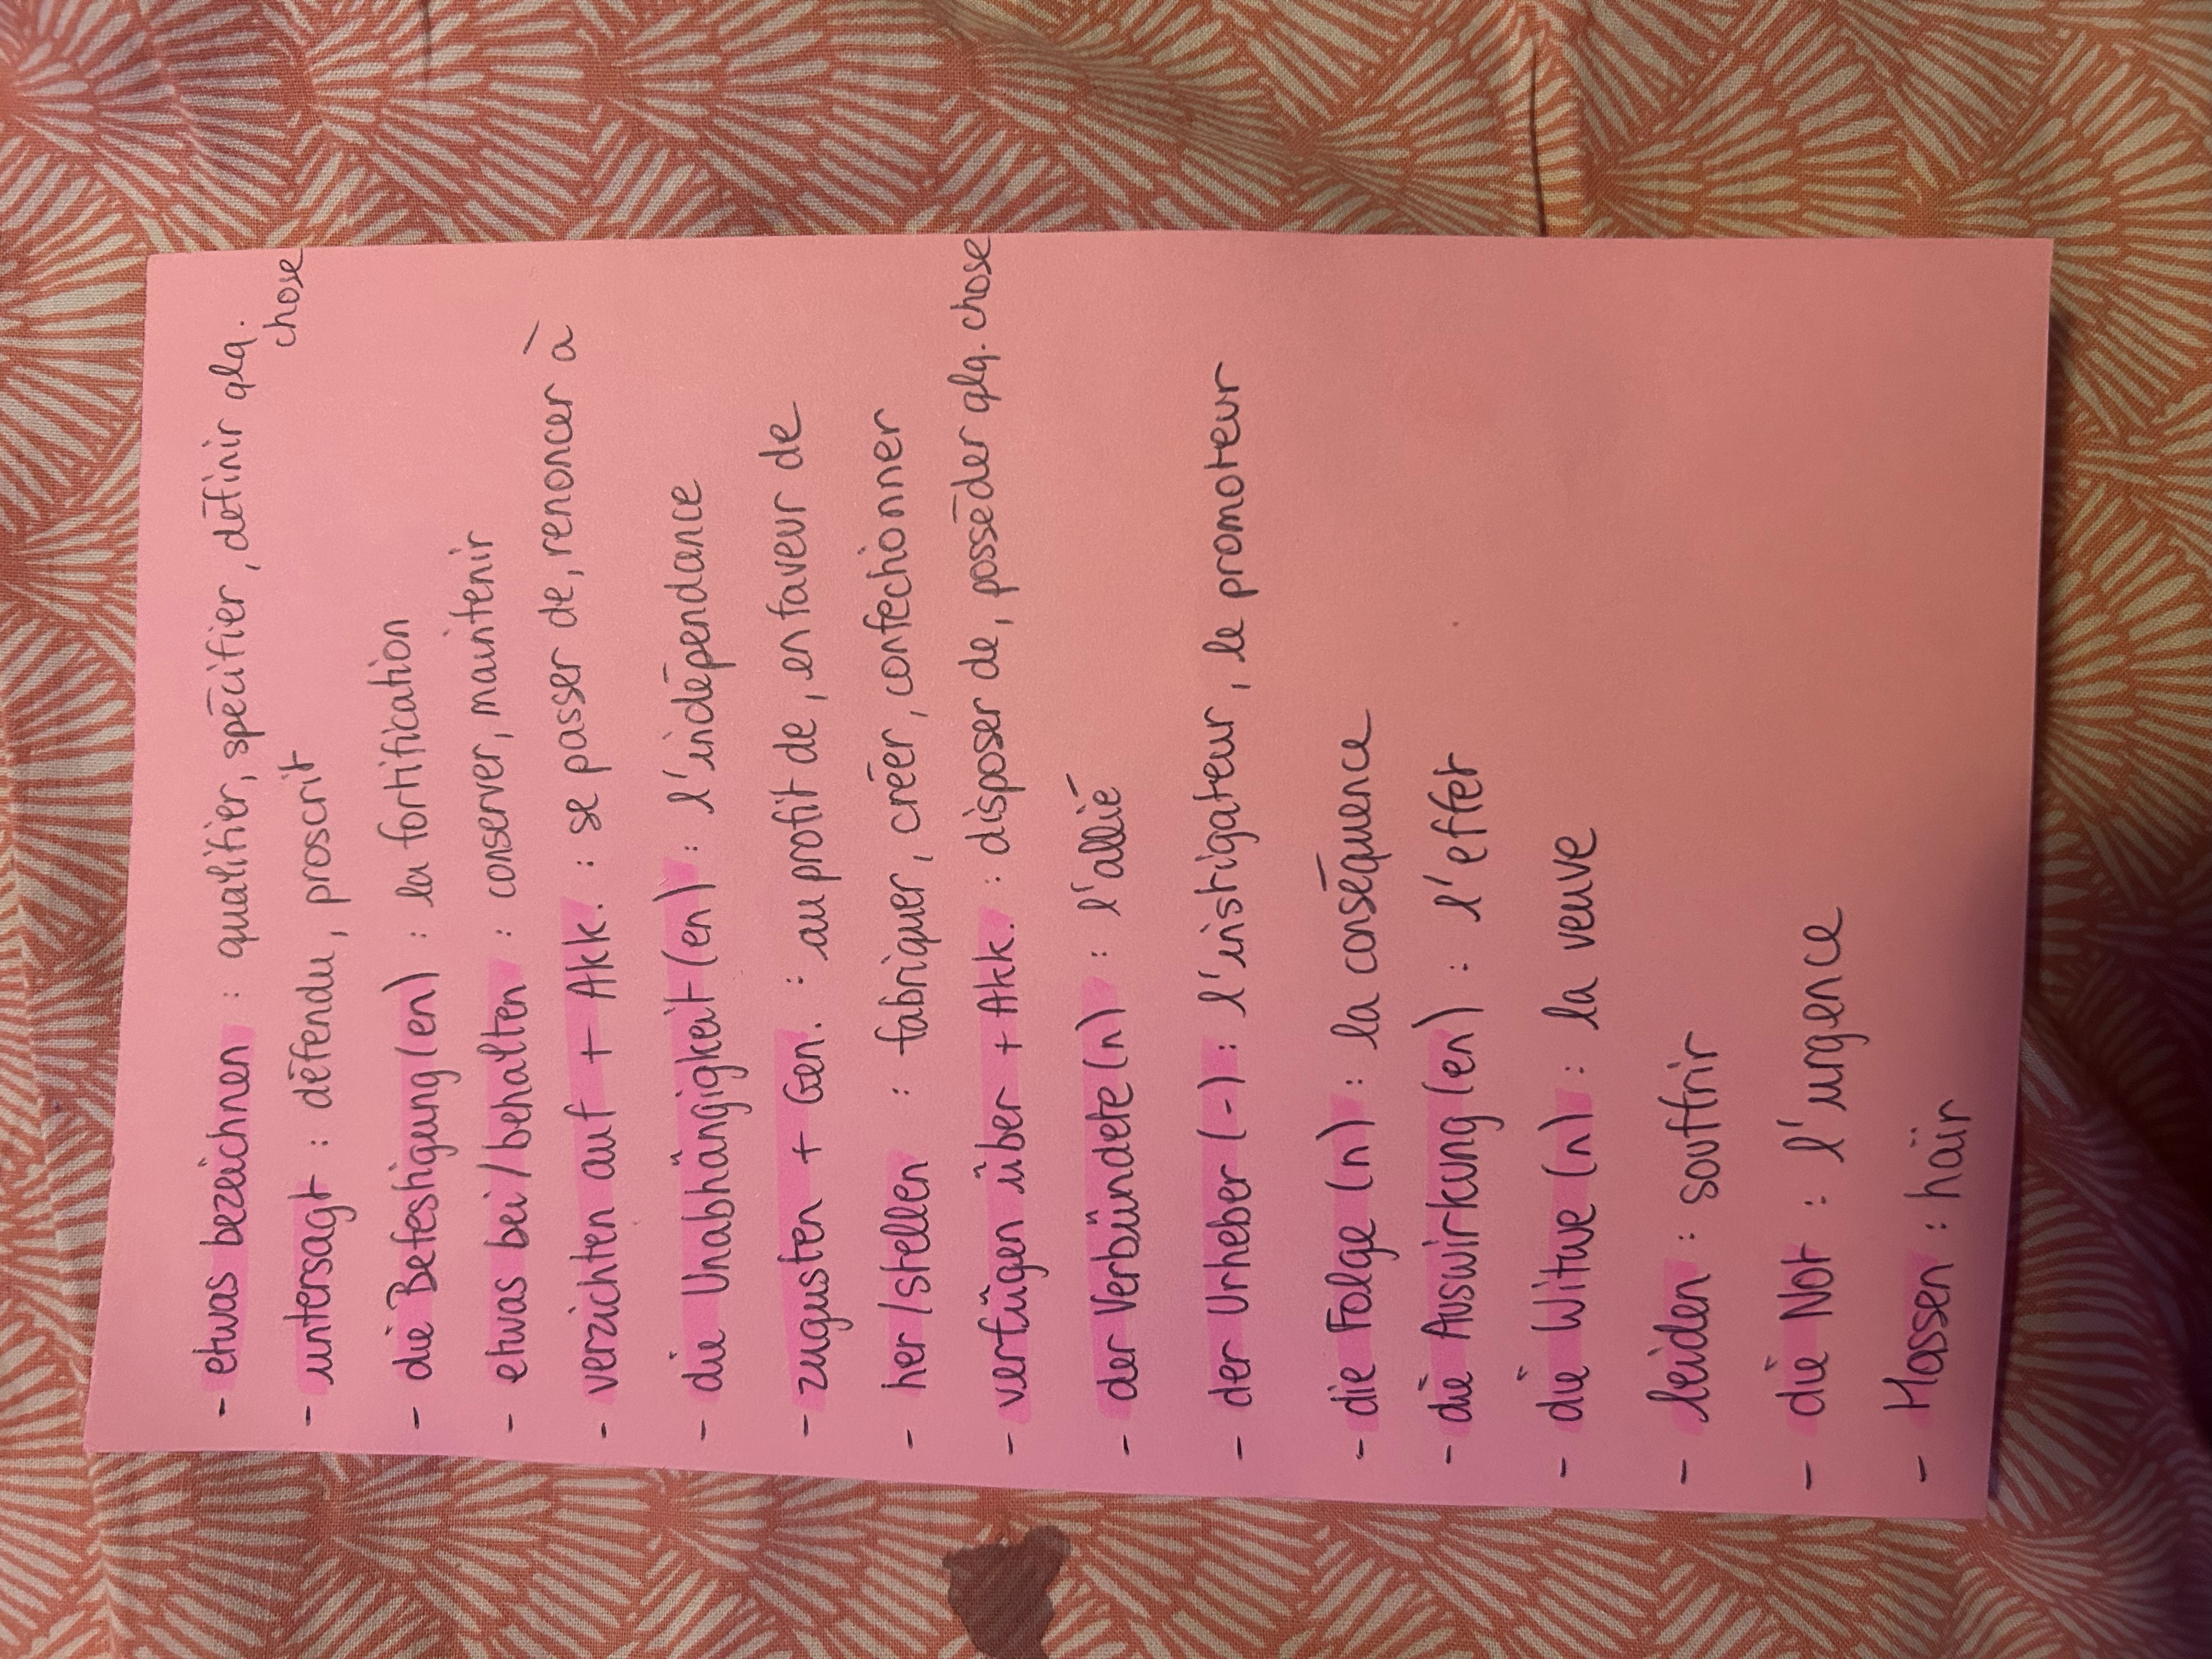 - etwas bezeichnen : qualifier, spécifier, définir qlq.
chose
- untersagt : défendu, proscrit
- die Befestigung (en) : la fortification
- etwas bei/behalten : conserver, maintenir
- verzichten auf + Akk. : se passer de, renoncer à
- die Unabhängigkeit (en) : l'indépendance
- zugusten + Gen. : au profit de, en faveur de
- her/stellen : fabriquer, créer, confectionner
- verfügen über + Akk. : disposer de, posséder qlq. chose
- der Verbündete (n) : l'allié
- der Urheber (-) : l'instigateur, le promoteur
- die Folge (n) : la conséquence
- die Auswirkung (en) : l'effet
- die Witwe (n) : la veuve
- leiden : souffrir
- die Not : l'urgence
- Hassen : haïr